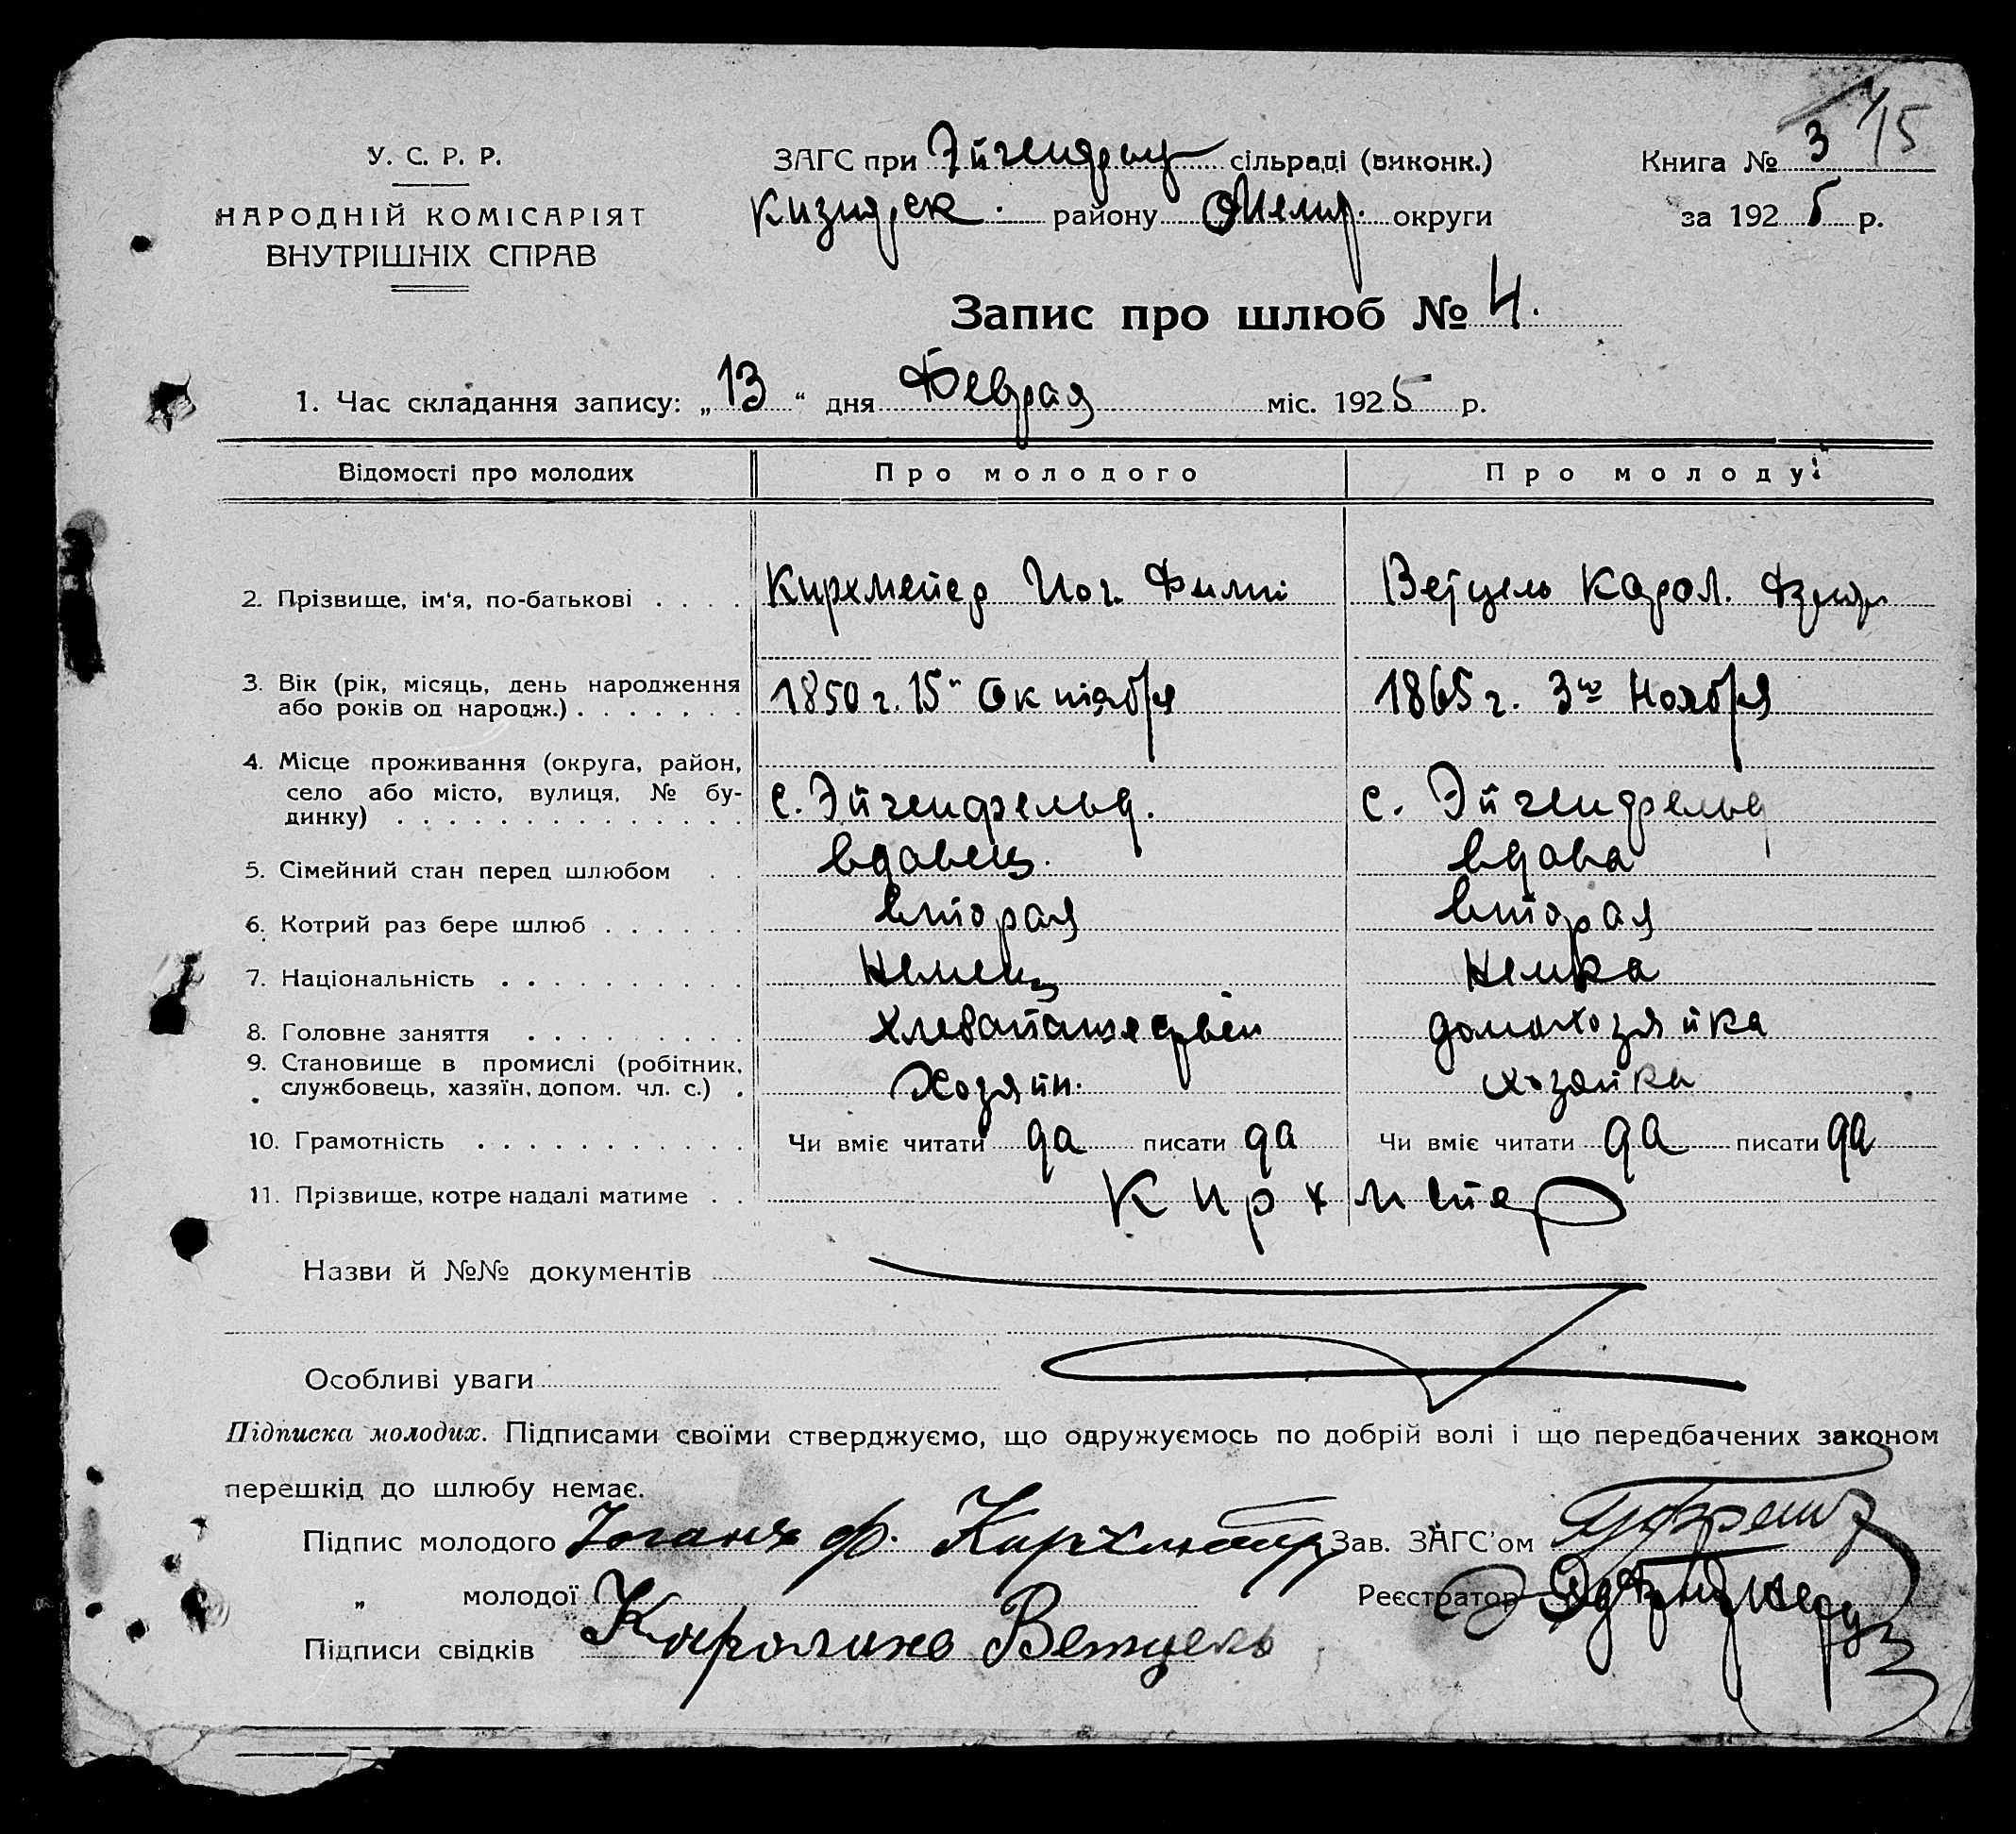 У. С. Р. Р.
НАРОДНІЙ КОМІСАРІЯТ
ВНУТРІШНІХ СПРАВ
ЗАГС при Эйгенфельд сільраді (виконк.)
районy Мелит. округи
Книга № 3 15
за 1925 р.
Запис про шлюб № 4.
1. Час складання запису: „13“ дня Феврая міс. 1925 р.
Відомості про молодих Про молодого Про молоду:
2. Прізвище, ім‘я, по-батькові . . . . Кирхмейер Иог. Филип Ветцель Карол.
3. Вік (рік, місяць, день народження
або років од народж.) . . . . . . . 1850 г. 15го Октября 1865 г. 3го Ноября
4. Місце проживання (округа, район,
село або місто, вулиця, № бу-
динку) . . . . . . . . . . . . . . . с. Эйгенфельд. с. Эйгенфельд
5. Сімейний стан перед шлюбом . . вдовец. вдова
6. Котрий раз бере шлюб . . . . . . вторая вторая
7. Національність . . . . . . . . . . Немец Немка
8. Головне заняття . . . . . . . . . домохозяйка
9. Становище в промислі (робітник,
службовець, хазяїн, допом. чл. с.) . Хозяйн. хозяйка
10. Грамотність . . . . . . . . . . . Чи вміє читати да писати да Чи вміє читати да писати да
11. Прізвище, котре надалі матиме . . Кирхмейер
Назви й №№ документів
Особливі уваги
Підписка молодих. Підписами своїми стверджуємо, що одружуємось по добрій волі і що передбачених законом
перешкід до шлюбу немає.
Підпис молодого Иоганн Ф. Кирхмейер Зав. ЗАГС'ом
„ молодої Каролина Ветцель Реєстратор
Підписи свідків